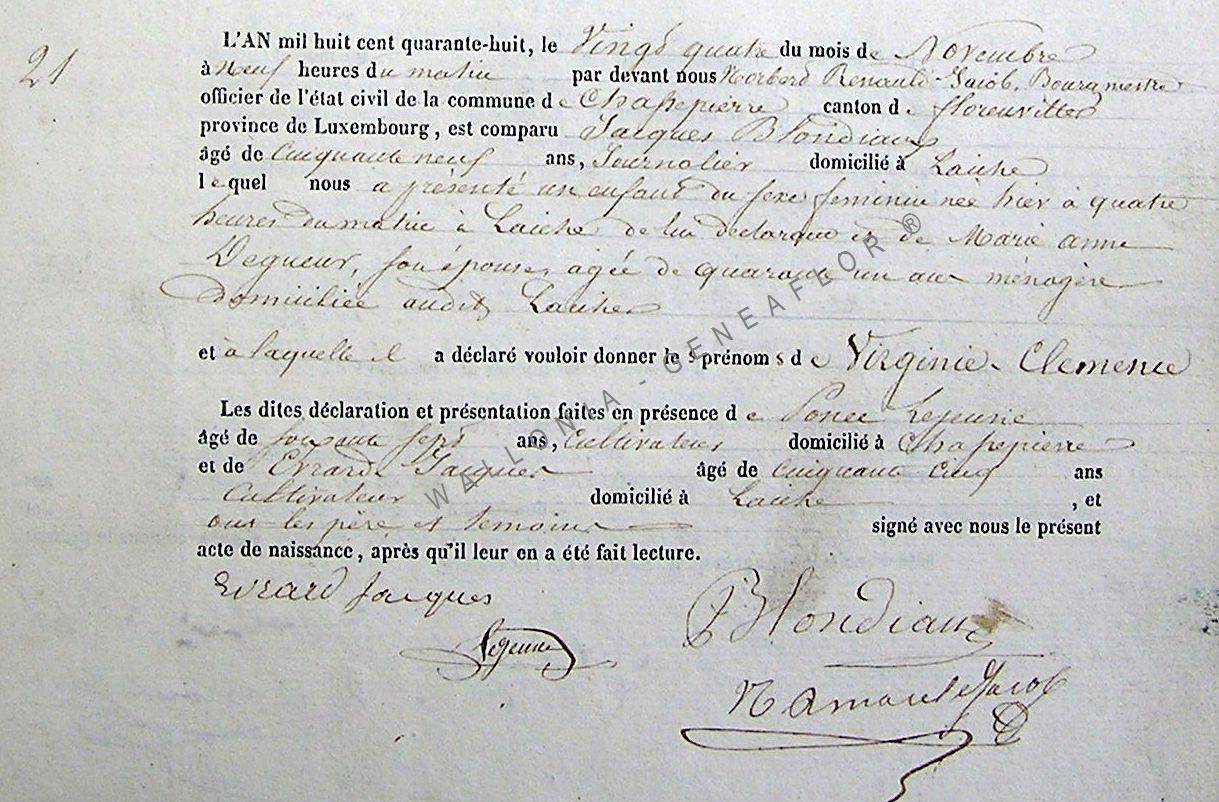 21
L'AN mil huit cent quarante-huit, le Vingt quatre du mois de Novembre
à Neuf heures du matin par devant nous Norbert Renauld-Jacob, Bourgmestre
officier de l'état civil de la commune de Chassepierre canton de florenville
province de Luxembourg, est comparu Jacques Blondiaux
âgé de Cinquante neuf ans, Journalier domicilié à Laiche
lequel nous a présenté un enfant du sexe feminin née hier à quatre
heures du matin à Laiche de lui déclarant et de Marie anne
Dequeur, son épouse, agée de quarante un ans ménagère
domiciliée audit Laiche
et à laquelle il a déclaré vouloir donner les prénoms de Virginie-Clemence
Les dites déclaration et présentation faites en présence de Ponce Lejeune
âgé de soixante sept ans, Cultivateur domicilié à Chassepierre
et de Evrard Jacques âgé de cinquante cinq ans
Cultivateur domicilié à Laiche, et
ont les père et temoins signé avec nous le présent
acte de naissance, après qu'il leur en a été fait lecture.
Evrard Jacques
Blondiaux
Lejeune
WALLONIA - GENEAFLOR ®